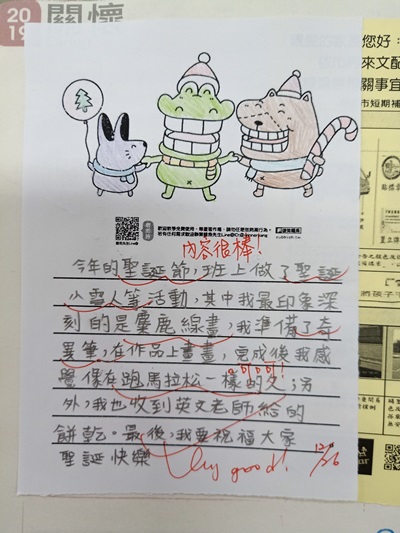 2019
關懷
您好：
來文配
關事宜
市短期補
內容很棒！
今年的聖誕節，班上做了聖誕
小雪人等活動，其中我最印象深
刻的是麋鹿線畫，我準備了奇
異筆，在作品上畫畫，完成後我感
覺像在跑馬拉松一樣的久；另
呵呵呵！
外，我也收到英文老師給的
餅乾。最後，我要祝福大家
聖誕快樂
Very good!
12/26